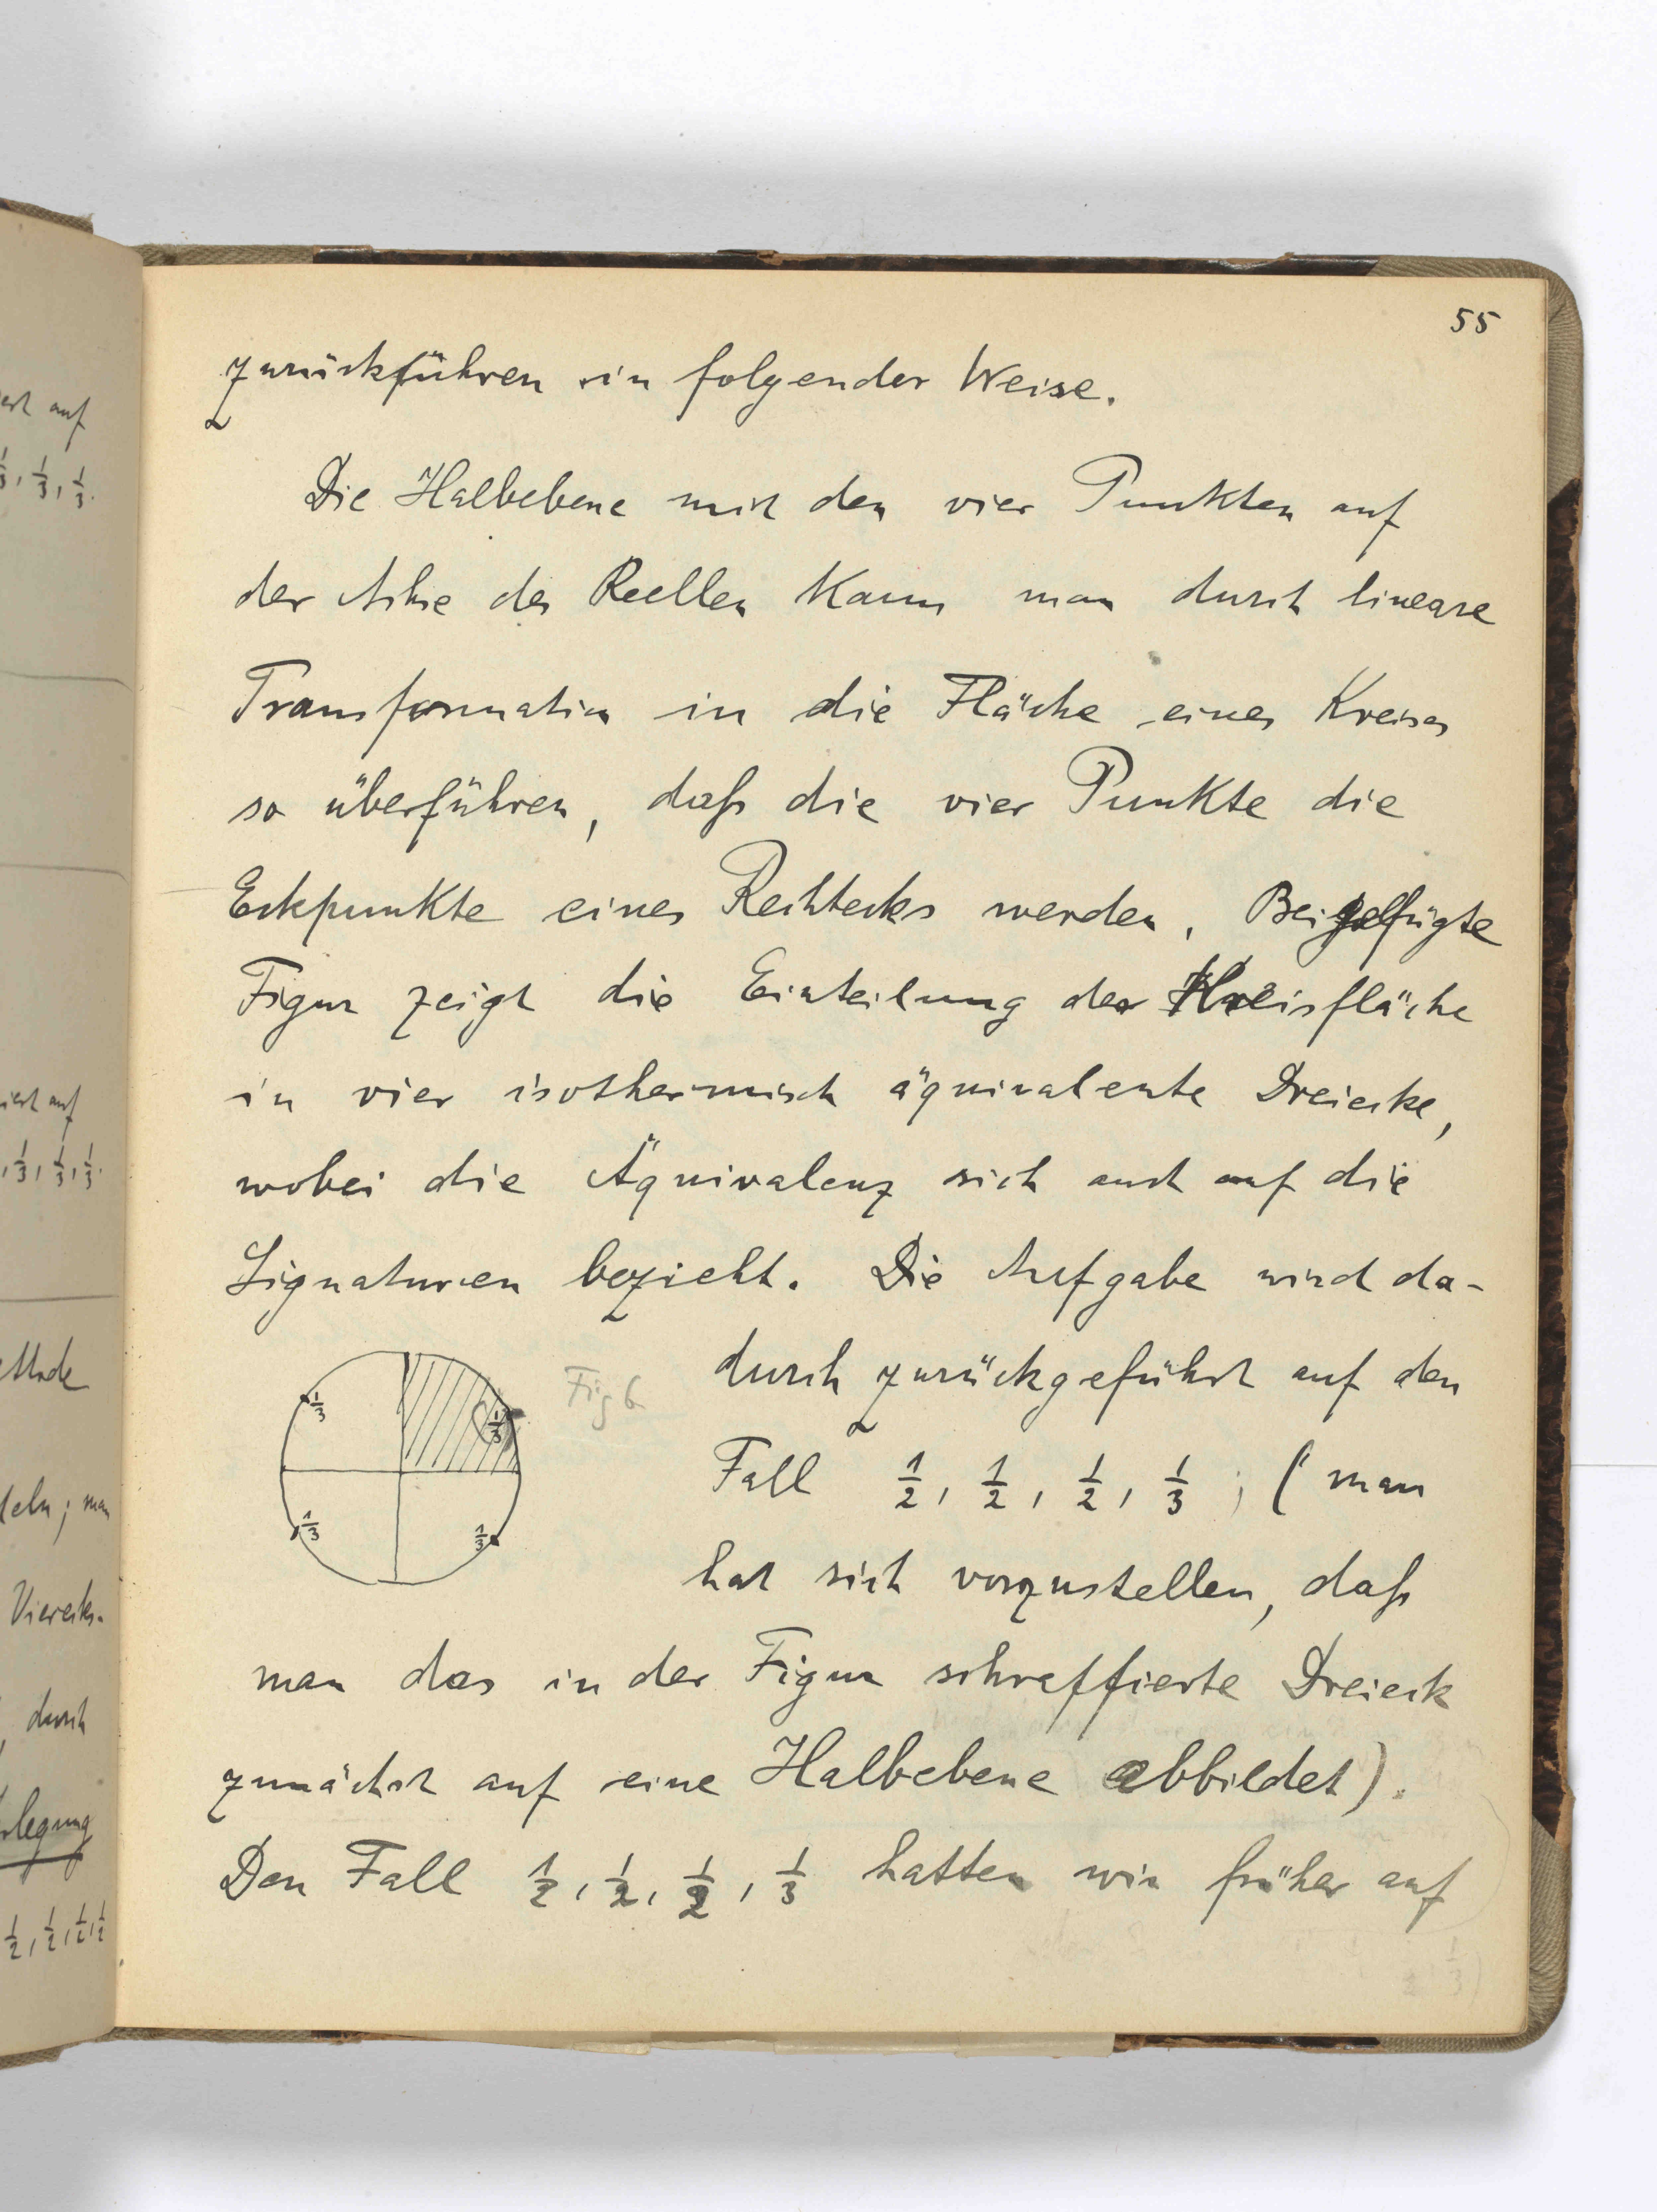 55
zurückführen in folgender Weise.
Die Halbebene mit den vier Punkten auf
der Achse des Reellen kann man durch lineare
Transformation in die Fläche eines Kreises
so überführen, daß die vier Punkte die
Eckpunkte eines Rechtecks werden. Beigefügte
Figur zeigt die Einteilung der Kreisfläche
in vier isothermisch äquivalente Dreiecke,
wobei die Äquivalenz sich auch auf die
Signaturen bezieht. Die Aufgabe wird da-
durch zurückgeführt auf den
Fall 1/2, 1/2, 1/2, 1/3; (man
hat sich vorzustellen, daß
man das in der Figur schraffierte Dreieck
zunächst auf eine Halbebene abbildet).
Den Fall 1/2, 1/2, 1/2, 1/3 hatten wir früher auf
1/3
1/3
1/3
1/3
Fig 6
auf
1/3, 1/3, 1/3.
auf
1/3, 1/3, 1/3.
deln; man
Vierecks-
durch
legung
1/2, 1/2, 1/2, 1/2